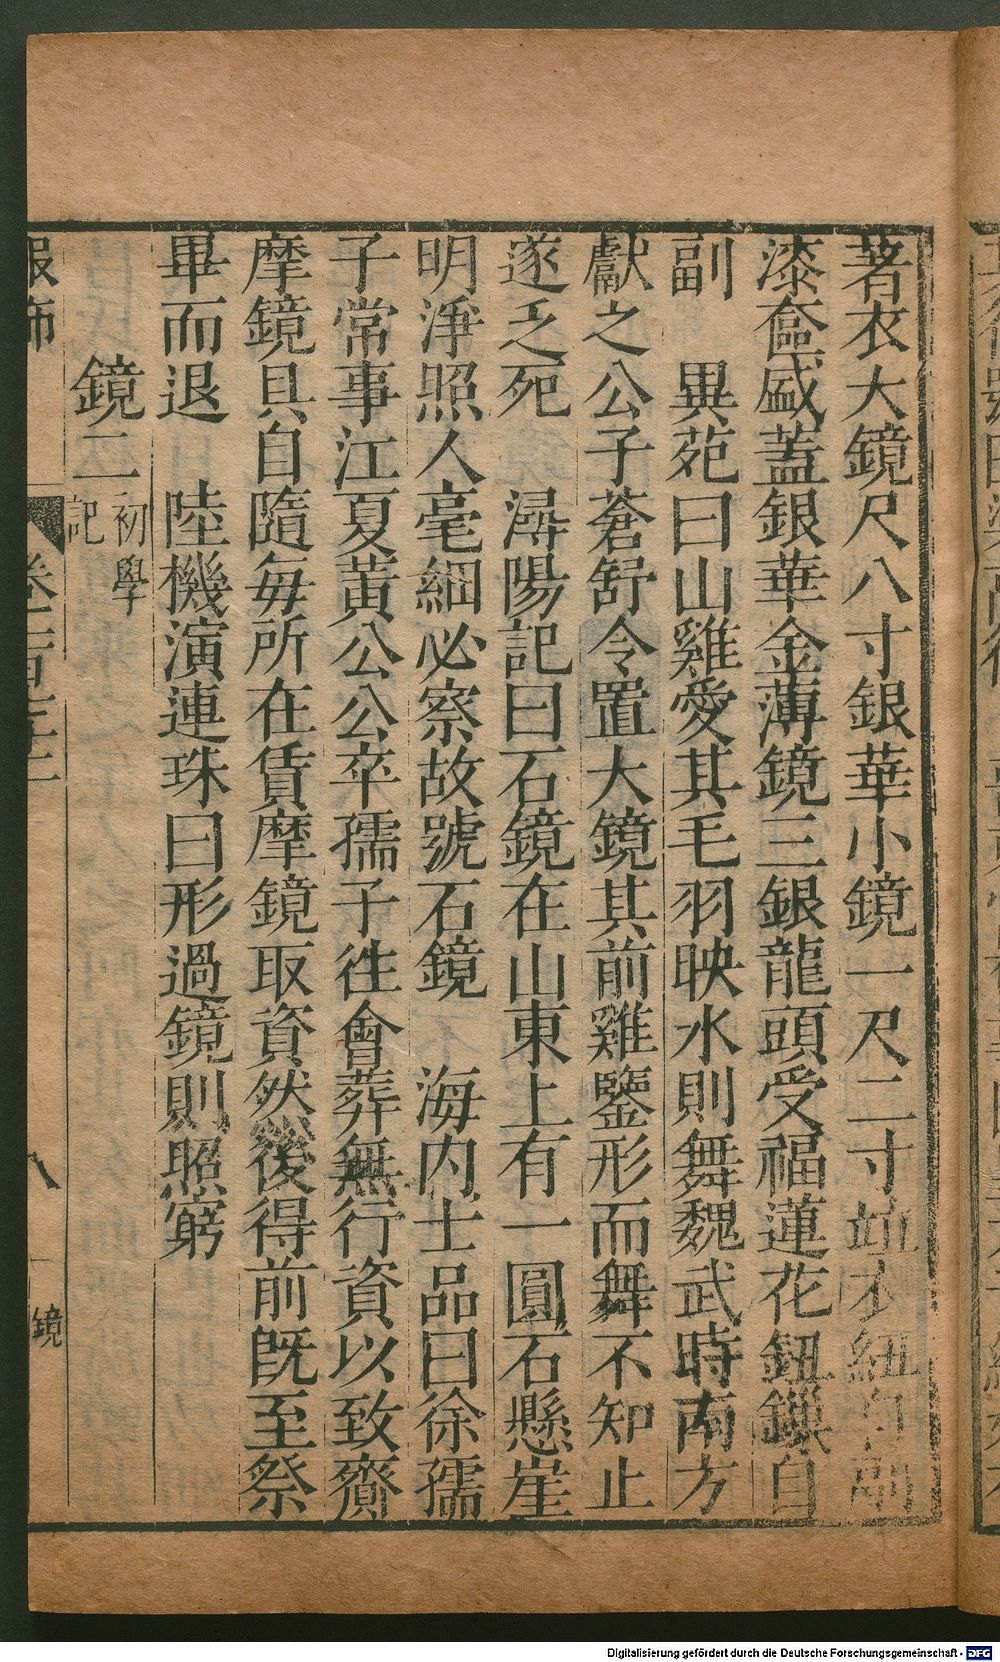 著衣大鏡尺八寸銀華小鏡一尺二寸竝衣紐自副
漆奩盛蓋銀華金薄鏡三銀龍頭受福蓮花鈕鏁自
副　異苑曰山雞愛其毛羽映水則舞魏武時南方
獻之公子蒼舒令置大鏡其前雞鑒形而舞不知止
遂之死　潯陽記曰石鏡在山東上有一圓石懸崖
明淨照人毫細必察故號石鏡　海內士品曰徐孺
子常事江夏黃公公卒孺子徃會葬無行資以致齎
摩鏡具自隨每所在賃摩鏡取資然後得前旣至祭
畢而退　陸機演連珠曰形過鏡則照窮
鏡二初學記
服飾
八
鏡
Digitalisierung gefördert durch die Deutsche Forschungsgemeinschaft - DFG